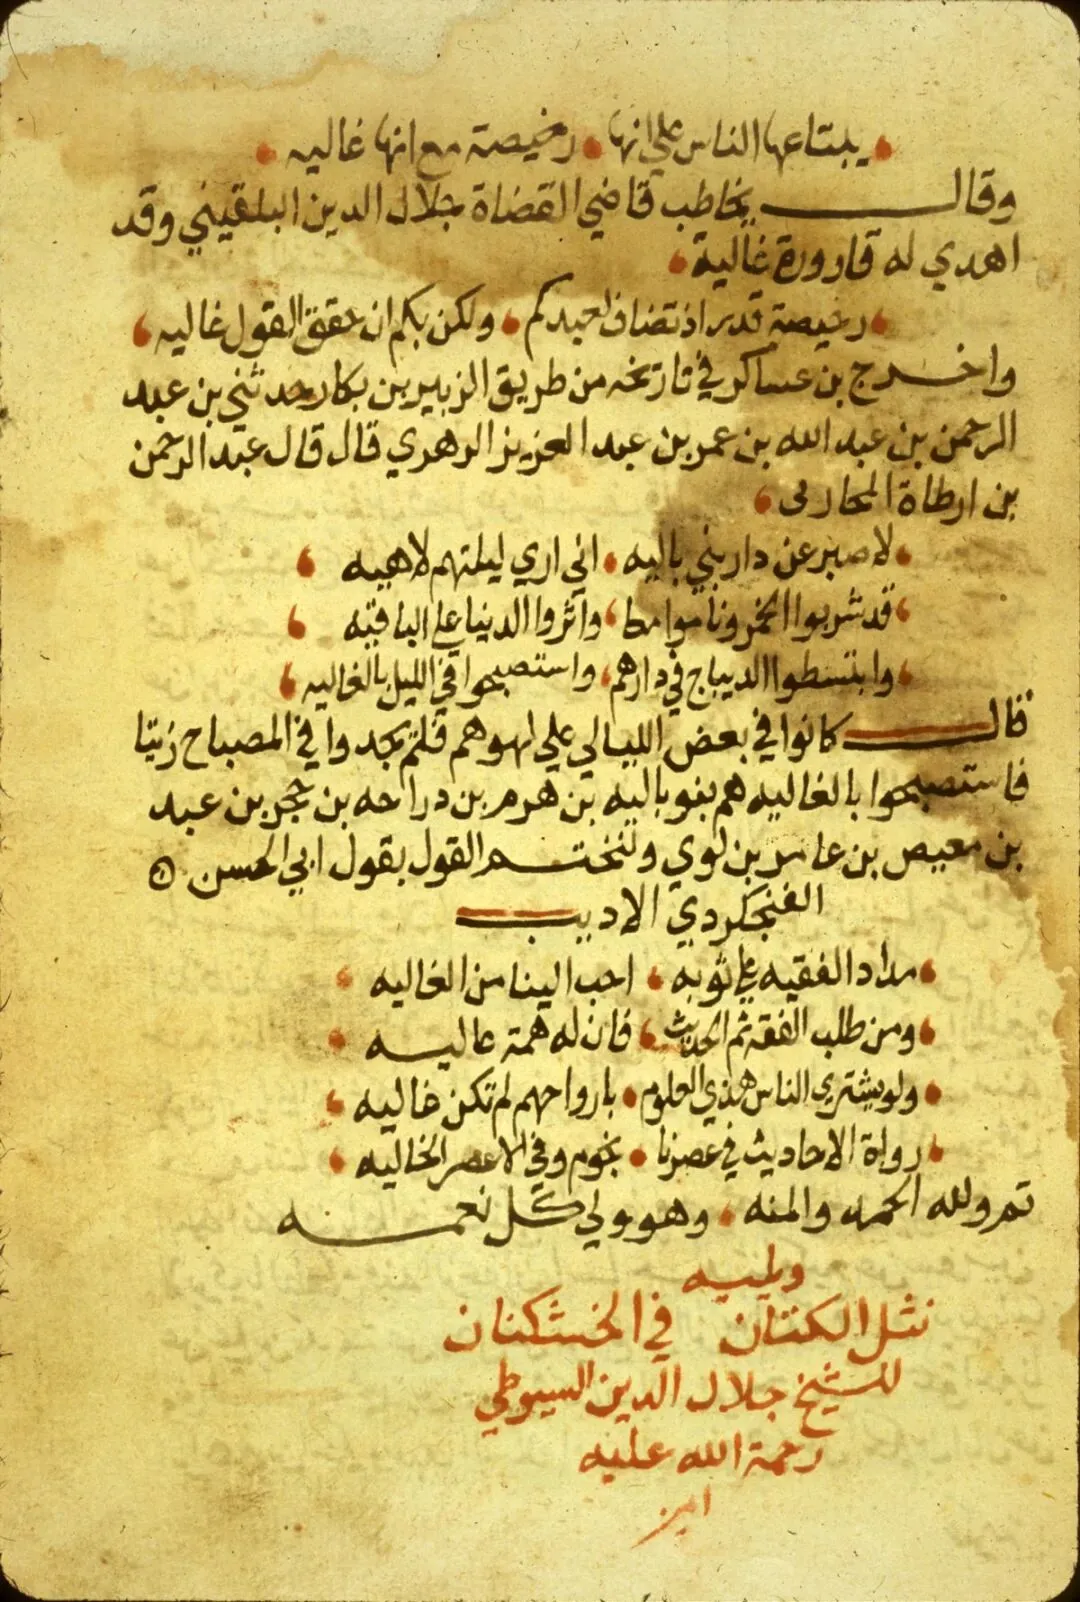 يبتاعها الناس على انها رخيصة مع انها غاليه
وقال يخاطب قاضي القضاة جلال الدين البلقيني وقد
اهدي له قارورة غالية
رخيصة قدر اذ تضاف لعبدكم ولكن بكم ان حقق القول غاليه
واخرج بن عساكر في تاريخه من طريق الزبير بن بكار حدثني بن عبد
الرحمن بن عبد الله بن عمر بن عبد العزيز الزهري قال قال عبد الرحمن
بن ارطاة المحاربى
لا صبر عن دار بني باليه اني اري ليلتهم لاهيه
قد شربوا الخمر وناموا معا واثروا الدنيا على الباقيه
وابتسطوا الديباج في دارهم واستصبحوا في الليل بالغاليه
قال كانوا في بعض الليالي علي لهوهم فلم يجدوا في المصباح زيتا
فاستصبحوا بالغاليه هم بنو باليه بن هرم بن دراحه بن حجر بن عبد
بن معيص بن عامر بن لوي ولنختم القول بقول ابي الحسن
الفنجكردي الاديب
مداد الفقيه على ثوبه احب الينا من الغاليه
ومن طلب الفقه ثم الحديث فان له همة عاليه
ولو يشتري الناس هذي العلوم بارواحهم لم تكن غاليه
رواة الاحاديث في عصرنا نجوم وفي الاعصر الخاليه
تم ولله الحمد والمنه وهو ولي كل نعمه
ويليه
نثل الكنتان في الخشكنان
للشيخ جلال الدين السيوطي
رحمة الله عليه
امين